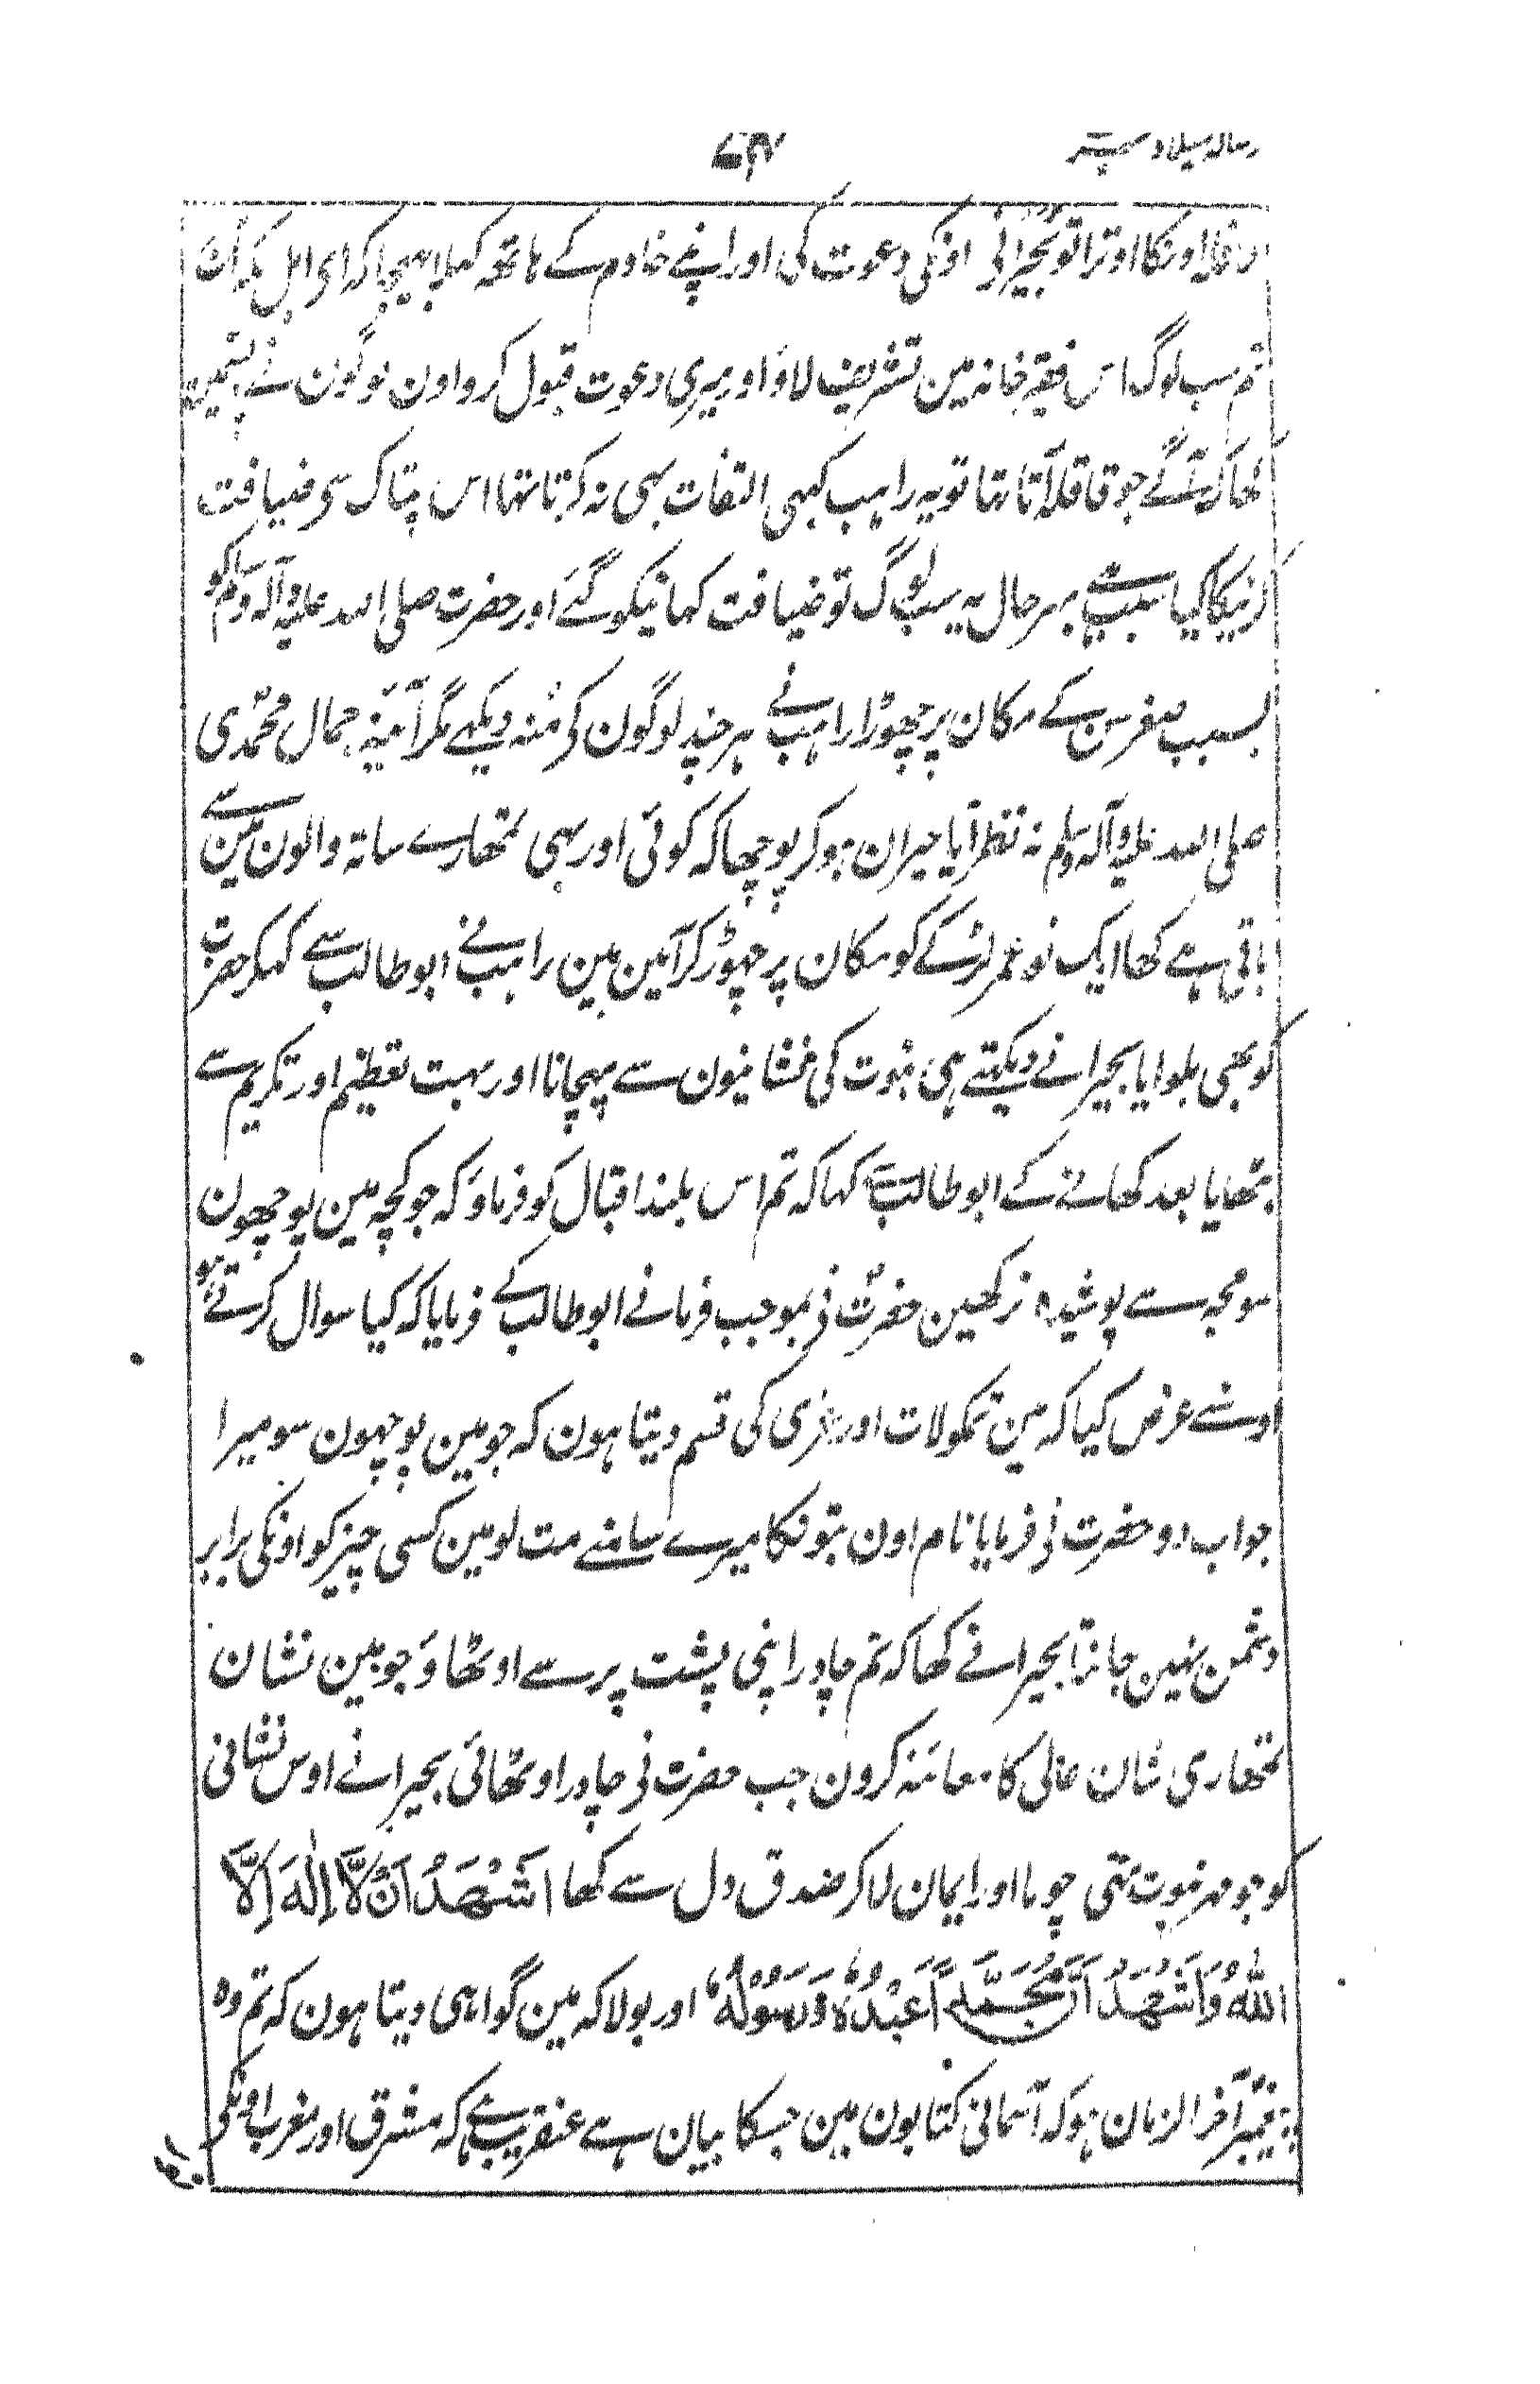 رسالہ میلاد
قافلہ اونکا اوترا تو بحیرا نی اونکی دعوت کی اور اپنے خادم کے ہاتھہ کہلا بھیجا کہ ای اہل مکہ
تم سب لوگ اس فقیر خانہ مین تشریف لاؤ اور میری دعوت قبول کرو اون لوگون نے
کہا کہ آگے جو قافلہ آتا تہا تو یہ راہب کبہی التفات بہی نہ کرتا تہا اس تپاک سی ضیافت
کرنیکا کیا سبب ہے بہر حال یہ سب لوگ تو ضیافت کہانیکو گئے اور حضرت صلی اللہ علیہ وآلہ وسلم کو
بسبب صغر سن کے مکان پر چھوڑا راہب نے ہر چند لوگون کی منہ دیکہے مگر آئینہ جمال محمّدی
صلی اللہ علیہ وآلہ وسلم نہ نظر آیا حیران ہو کر پوچھا کہ کوئی اور بہی تمھارے ساتہ والون مین سے
باقی ہے کھا ایک نو عمر لڑکے کو مکان پر چہوڑ کر آئین ہین راہب نے ابو طالب سے کہکر حضرت
کو بھی بلوایا بحیرا نے دیکہتے ہی نبوت کی نشانیون سے پہچانا اور بہت تعظیم اور تکریم سے
بٹھایا بعد کھانے کے ابو طالب سے کہا کہ تم اس بلند اقبال کو فرماؤ کہ جو کچہ مین پوچھون
سو مجہ سے پوشیدہ نرکھین حضرت نی بموجب فرمانے ابو طالب کے فرمایا کہ کیا سوال کرتے ہو
اوسنے عرض کیا کہ مین تمکو لات اور عزی کی قسم دیتا ہون کہ جو مین پوچہون سو میرا
جواب دو حضرت نی فرمایا نام اون بتونکا میرے سامنے مت لو مین کسی چیز کو اونکی برابر
دشمن نہین جانتا بحیرا نے کھا کہ تم چادر اپنی پشت پر سے اوٹھاؤ جو مین نشان
تمھاری شان عالی کا معائنہ کرون جب حضرت نی چادر اوٹھائی بحیرا نے اوس نشانی
کو جو مہر نبوت تہی چوما اور ایمان لا کر صدق دل سے کھا اَشْهَدُ اَنْ لَّا اِلٰهَ اِلَّا
اللّٰهُ وَاَشْهَدُ اَنَّ مُحَمَّدًا عَبْدُهٗ وَرَسُوْلُهٗ اور بولا کہ مین گواہی دیتا ہون کہ تم وہ
پیغمبر آخر الزمان ہو کہ آسمانی کتابون مین جسکا بیان ہے عنقریب ہے کہ مشرق اور مغرب اونکی